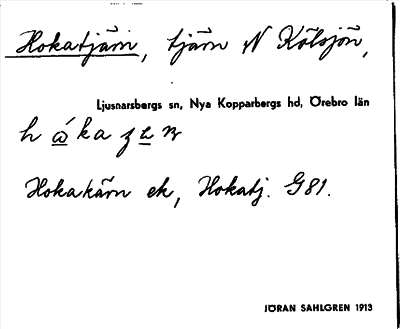 Hokatjärn, tjärn N Kölsjön,
Ljusnarsbergs sn, Nya Kopparbergs hd, Örebro län
Hokakärn ek, Hokatj. G81.
JÖRAN SAHLGREN 1913